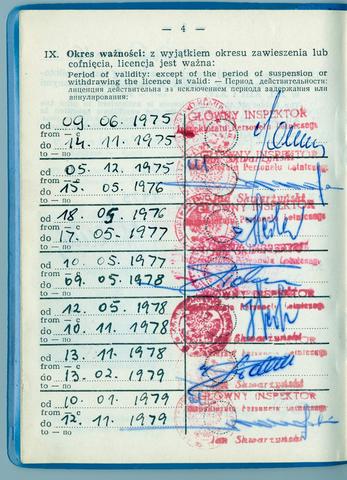 — 4 —
IX. Okres ważności: z wyjątkiem okresu zawieszenia lub
cofnięcia, licencja jest ważna:
Period of validity: except of the period of suspension or
withdrawing the licence is valid: — Период действительности:
лиценция действительна за исключением периода задержания или
аннулирования:
od 09. 06. 1975 GŁÓWNY INSPEKTOR
from — с Personelu Lotniczego
do 14. 11. 1975
to — по Skwarzyński
od 05. 12. 1975 INSPEKTOR
from — с Personelu Lotniczego
do 15. 05. 1976
to — по Jan Skwarzyński
od 18. 05. 1976 INSPEKTOR
from — с
do 17. 05. 1977
to — по
od 10. 05. 1977 INSPEKTOR
from — с
do 09. 05. 1978
to — по
od 12. 05. 1978 GŁÓWNY INSPEKTOR
from — с Personelu Lotniczego
do 10. 11. 1978
to — по Skwarzyński
od 13. 11. 1978 INSPEKTOR
from — с
do 13. 02. 1979
to — по Jan Skwarzyński
od 10. 01. 1979 GŁÓWNY INSPEKTOR
from — с Personelu Lotniczego
do 12. 11. 1979
to — по Jan Skwarzyński